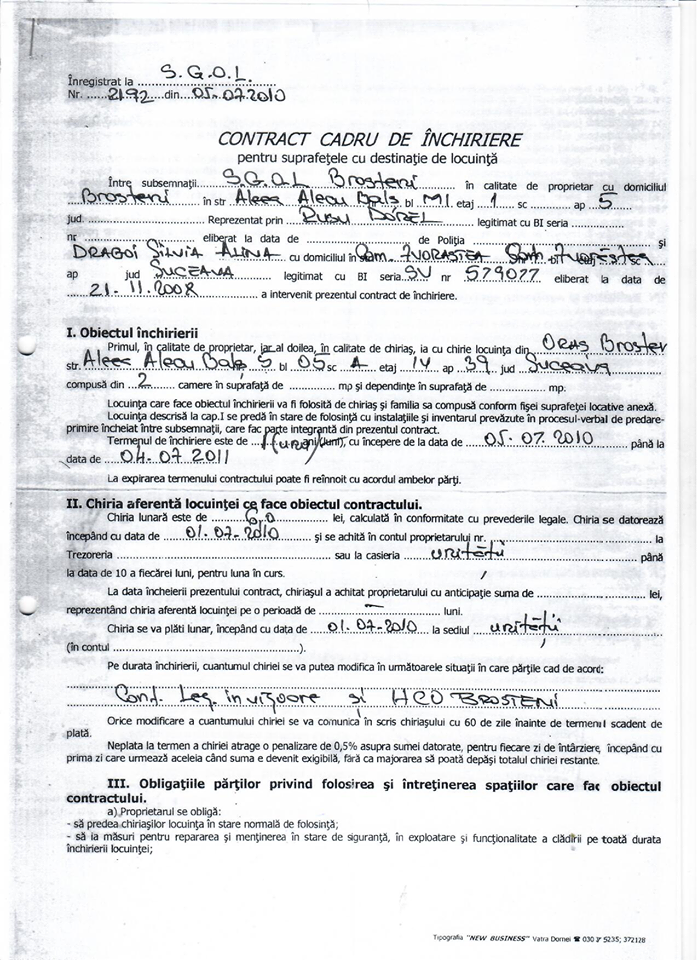 Înregistrat la ..... S.G.O.L. .....
Nr. ..... 2192 ..... din ..... 05.07.2010
CONTRACT CADRU DE ÎNCHIRIERE
pentru suprafeţele cu destinaţie de locuinţă
Între subsemnaţii ..... S.G.O.L Broşteni ..... în calitate de proprietar cu domiciliul
..... Broşteni ..... în str Aleea Alecu Balş bl M1. etaj 1 sc ..... ap 5
jud. ..... Reprezentat prin RUSU DOREL ..... legitimat cu BI seria .....
nr ..... eliberat la data de ..... de Poliţia ..... şi
DRAGOI SILVIA ALINA cu domiciliul în
ap jud SUCEAVA ..... legitimat cu BI seria SV nr 579077 eliberat la data de
..... 21.11.2008 ..... a intervenit prezentul contract de închiriere.
I. Obiectul închirierii
Primul, în calitate de proprietar, iar al doilea, în calitate de chiriaş, ia cu chirie locuinţa din ORAŞ Broşten
str. Aleea Alecu Balş bl 05 sc A etaj 14 ap 39 jud Suceava
compusă din 2 camere în suprafaţă de ..... mp şi dependinţe în suprafaţă de ..... mp:
Locuinţa care face obiectul închirierii va fi folosită de chiriaş şi familia sa compusă conform fişei suprafeţei locative anexă.
Locuinţa descrisă la cap.I se predă în stare de folosinţă cu instalaţiile şi inventarul prevăzute în procesul-verbal de predare-
primire încheiat între subsemnaţii, care fac parte integrantă din prezentul contract.
Termenul de închiriere este de ..... 1 (unu) ani(luni), cu începere de la data de ..... 05.07.2010 ..... până la
data de ..... 04.07.2011 .....
La expirarea termenului contractului poate fi reînnoit cu acordul ambelor părţi.
II. Chiria aferentă locuinţei ce face obiectul contractului.
Chiria lunară este de ..... 60 ..... lei, calculată în conformitate cu prevederile legale. Chiria se datorează
începând cu data de ..... 01.07-2010 ..... şi se achită în contul proprietarului nr. ..... la
Trezoreria ..... sau la casieria ..... unităţii ..... până
la data de 10 a fiecărei luni, pentru luna în curs.
La data încheierii prezentului contract, chiriaşul a achitat proprietarului cu anticipaţie suma de ..... lei,
reprezentând chiria aferentă locuinţei pe o perioadă de ..... — ..... luni.
Chiria se va plăti lunar, începând cu data de ..... 01.07-2010 ..... la sediul unităţii
(în contul .....).
Pe durata închirierii, cuantumul chiriei se va putea modifica în următoarele situaţii în care părţile cad de acord:
Conf. Leg. în vigoare şi HCO BROŞTENI
Orice modificare a cuantumului chiriei se va comunica în scris chiriaşului cu 60 de zile înainte de termenul scadent de
plată.
Neplata la termen a chiriei atrage o penalizare de 0,5% asupra sumei datorate, pentru fiecare zi de întârziere, începând cu
prima zi care urmează aceleia când suma e devenit exigibilă, fără ca majorarea să poată depăşi totalul chiriei restante.
III. Obligaţiile părţilor privind folosirea şi întreţinerea spaţiilor care fac obiectul
contractului.
a) Proprietarul se obligă:
- să predea chiriaşilor locuinţa în stare normală de folosinţă;
- să ia măsuri pentru repararea şi menţinerea în stare de siguranţă, în exploatare şi funcţionalitate a clădirii pe toată durata
închirierii locuinţei;
Tipografia "NEW BUSINESS" Vatra Dornei ☎ 030 5235; 372128